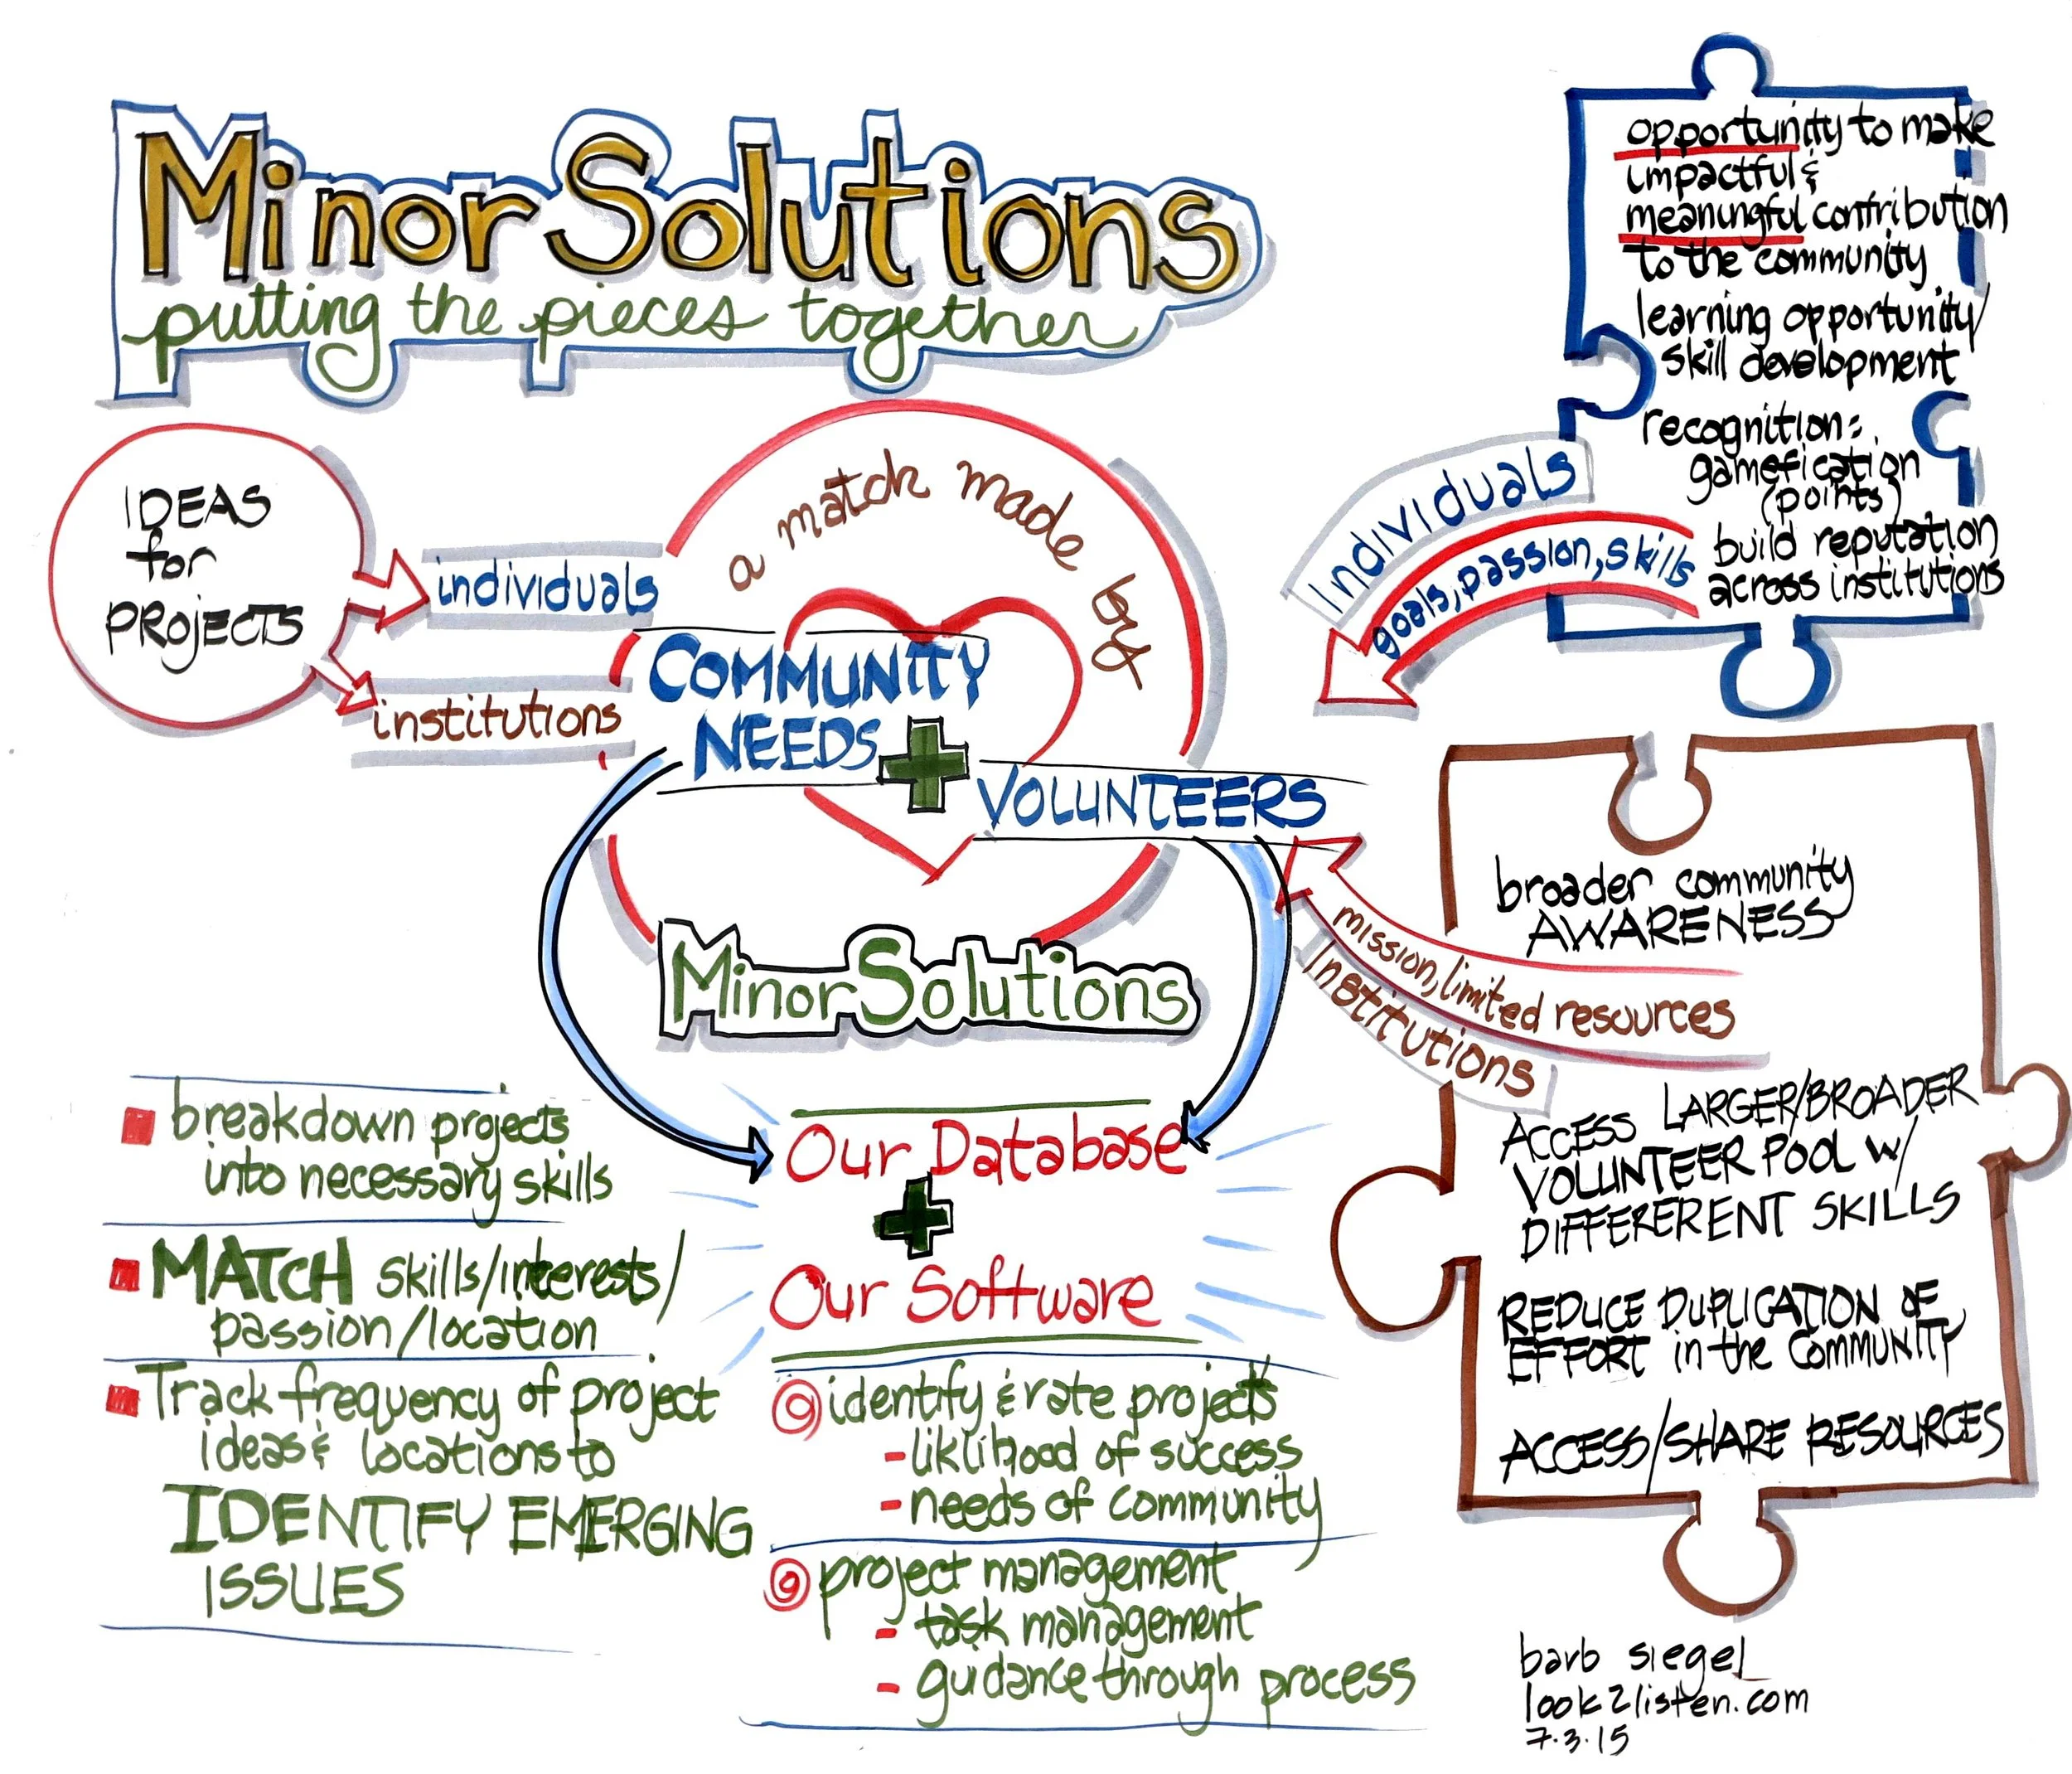 Minor Solutions
putting the pieces together
IDEAS
for
PROJECTS
individuals
institutions
a match made by
COMMUNITY
NEEDS
VOLUNTEERS
Minor Solutions
Our Database
Our Software
breakdown projects
into necessary skills
MATCH skills/interests/
passion/location
Track frequency of project
ideas & locations to
IDENTIFY EMERGING
ISSUES
identify & rate projects
- liklihood of success
- needs of community
project management
- task management
- guidance through process
Individuals
goals, passion, skills
opportunity to make
impactful &
meaningful contribution
to the community
learning opportunity/
skill development
recognition:
gamefication
(points)
build reputation
across institutions
mission, limited resources
Institutions
broader community
AWARENESS
ACCESS LARGER/BROADER
VOLUNTEER POOL w/
DIFFERERENT SKILLS
REDUCE DUPLICATION OF
EFFORT in the COMMUNITY
ACCESS/SHARE RESOURCES
barb siegel
look2listen.com
7.3.15